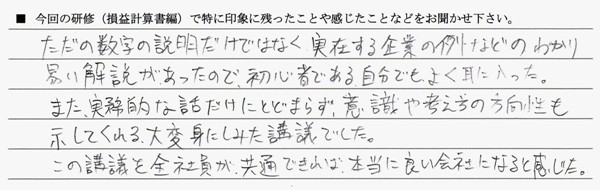 ■ 今回の研修（損益計算書編）で特に印象に残ったことや感じたことなどをお聞かせ下さい。
ただの数字の説明だけではなく、実在する企業の例などのわかり
易い解説があったので、初心者である自分でも、よく耳に入った。
また、実務的な話だけにとどまらず、意識や考え方の方向性も
示してくれる、大変身にしみた講議でした。
この講議を全社員が、共通できれば、本当に良い会社になると感じた。